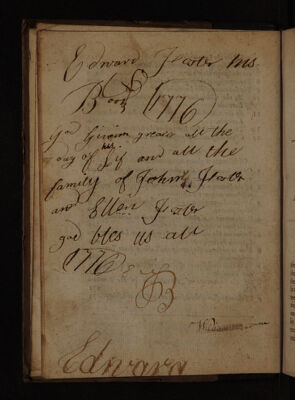 Edward Jester his
Book 1776
God Giv him greace all the
day of his Lif and all the
family of John Jester
and Ellen Jester
god bles us all
1776
B
Edward